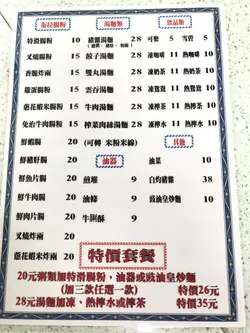 布拉腸粉
特滑腸粉 10
叉燒腸粉 15
香脆炸兩 15
雞蛋腸粉 15
蔥花蝦米腸粉 15
免治牛肉腸粉 15
鮮蝦腸 20
鮮豬肝腸 20
鮮魚片腸 20
鮮牛肉腸 20
鮮肉片腸 20
叉燒炸兩 20
蔥花蝦米炸兩 20
湯麵類
豬雜湯麵 28
餃子湯麵 28
雙丸湯麵 28
雲吞湯麵 28
牛肉湯麵 28
榨菜肉絲湯麵 28
(可轉 米粉米線)
油器
煎堆 9
油條 9
牛脷酥 9
飲品類
可樂 5 雪碧 5
凍咖啡 11 熱咖啡 10
凍奶茶 11 熱奶茶 10
凍鴛鴦 11 熱鴛鴦 10
凍檸茶 11 熱檸茶 10
凍檸水 11 熱檸水 10
其他
油菜 10
白灼豬雜 38
豉油皇炒麵 10
特價套餐
20元粥類加特滑腸粉,油器或豉油皇炒麵
(加三款任選一款) 特價26元
28元湯麵加凍、熱檸水或檸茶 特價35元